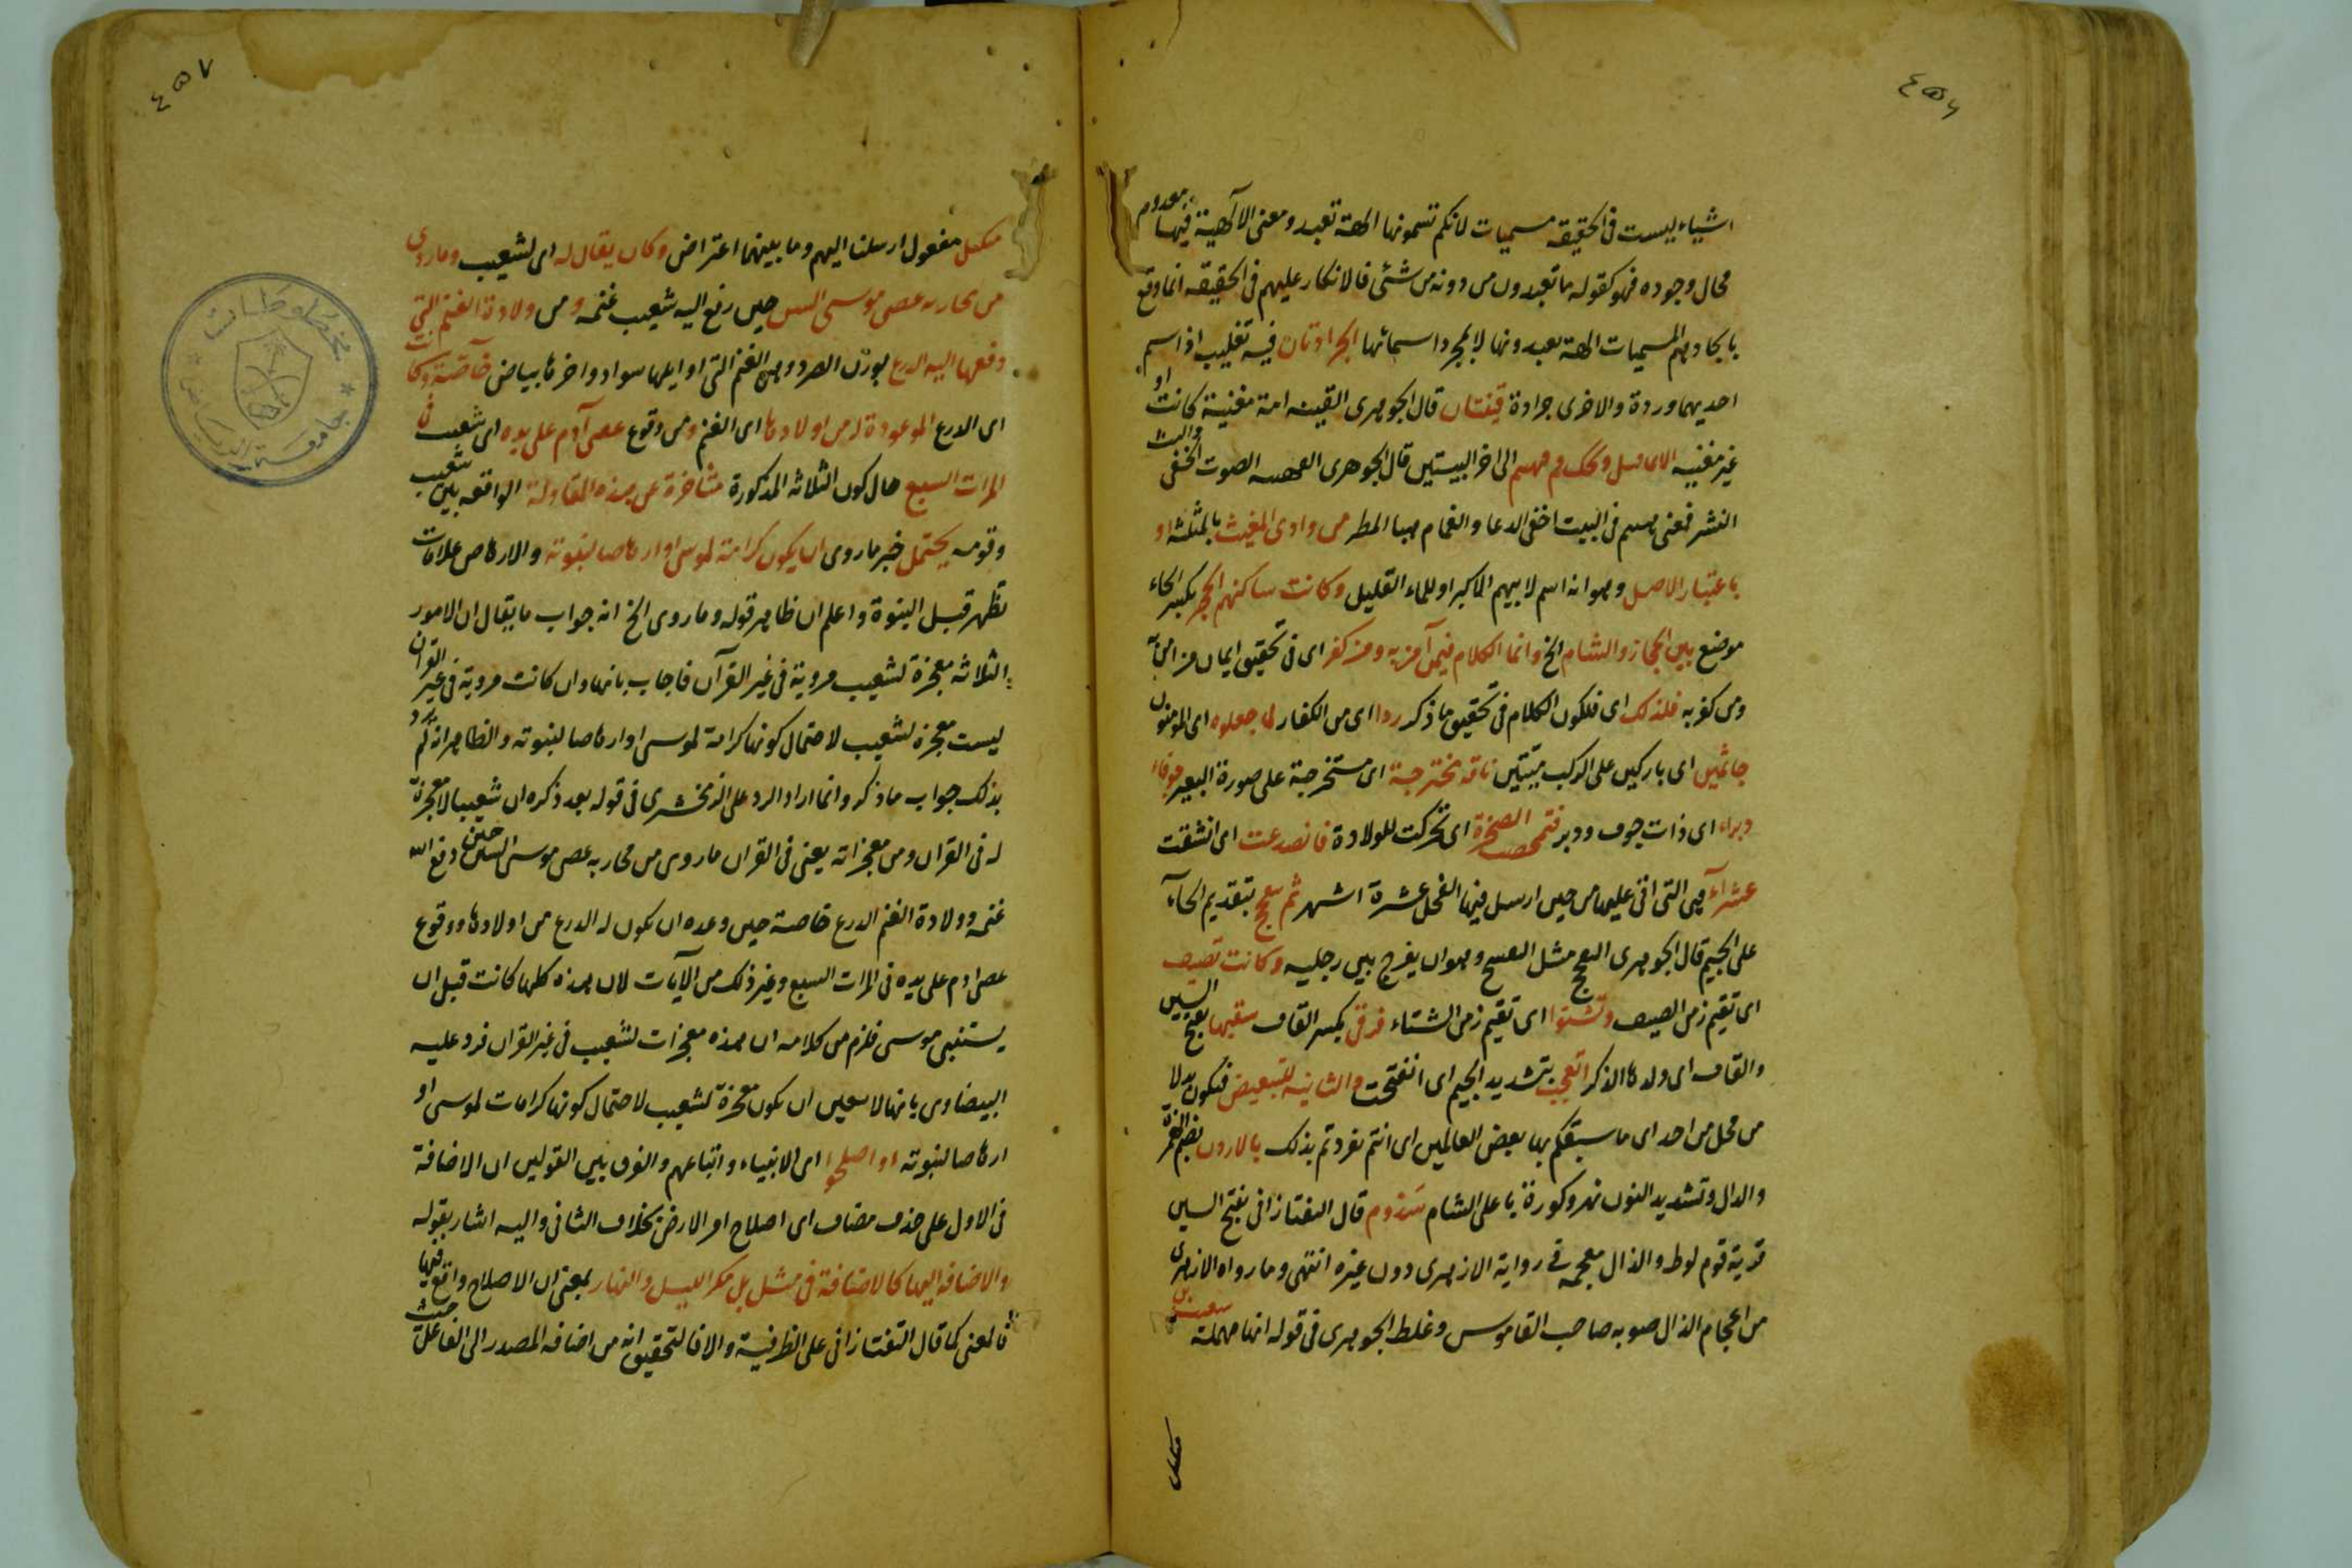 ٤٥٦
اشياء ليست فى الحقيقة مسميات لانكم تسمونها الهة تعبد ومعنى الآلهية فيها معدوم
محال وجوده فهو كقوله ما تعبدون من دونه من شئ فالانكار عليهم فى الحقيقه انما وقع
باتخاذهم المسميات الهة يعبدونها لا لمجرد اسمائها الجرادتان فيه تغليب اذ اسم
احديهما وردة والاخرى جرادة قينتان قال الجوهرى القينه امة مغنية كانت او
غير مغنيه الى اخر البيستين قال الجوهرى الصوت الخفى
فمعنى فى البيت اخفى الدعا والغمام المطر من وادى المغيث بالمثلثه او
باعتبار الاصل وهو انه اسم لابيهم الاكبر او للماء القليل وكانت ساكنهم الحجر بكسر الحاء
موضع بين الحجاز والشام الخ وانما الكلام فيمن آمن به ومن كفر اى فى تحقيق ايمان من امن به
ومن كفر به فلذلك اى فلكون الكلام فى تحقيق ما ذكر ردا اى من الكفار لما جعلوه اى المومنون
جاثمين اى باركين على الركب ميتين ناقة مخترجة اى مستخرجة على صورة البعير جوفاء
وبراء اى ذات جوف ووبر فتمخضت الصخرة اى تحركت للولادة فانصدعت اى انشقت
عشرآء هى التى اتى عليها من حين ارسل فيها الفحل عشرة اشهر ثم بتقديم الحآء
على الجيم قال الجوهرى مثل وهو ان يفرج بين رجليه وكانت تصيف
اى تقيم زمن الصيف وتشتوا اى تقيم زمن الشتاء فرقى بكسر القاف سقبها بفتح السين
والقاف اى ولدها الذكر بتشديد الجيم اى انفتحت والثانيه للتبعيض فتكون بدلا
من محل من احد اى ما سبقكم بها بعض العالمين اى انتم تفردتم بذلك بالاردن بضم الهمزة
والدال وتشديد النون نهر وكورة باعلى الشام سذوم قال التفتازانى بفتح السين
قرية قوم لوط والذال معجمه فى رواية الازهرى دون غيره انتهى وما رواه الازهرى
من اعجام الذال صوبه صاحب القاموس وغلط الجوهرى فى قوله انها مهملة
٤٥٧
مفعول ارسلنا اليهم وما بينهما اعتراض وكان يقال له اى لشعيب وما روى
من محاربه عصى موسى حين رفع اليه شعيب غنمه ومن ولادة الغنم التى
دفعها اليه الدرع بوزن وهى الغنم التى اوايلها سواد واخرها بياض خآصة وكانت
اى الدرع الموعودة له من اولادها اى الغنم ومن وقوع عصى آدم على يده اى شعيب فى
المرات السبع حال كون الثلاثه المذكورة متأخرة عن هذه المقاولة الواقعه بين شعيب
وقومه يحتمل خبر ما روى ان يكون كرامة لموسى او ارهاصا لنبوته والارهاص علامات
تظهر قبل النبوة واعلم ان ظاهر قوله وما روى الخ انه جواب ما يقال ان الامور
الثلاثه معجزة لشعيب مروية فى غير القرآن فاجاب بانها وان كانت مروية فى غير القران
ليست معجزة لشعيب لاحتمال كونها كرامة لموسى او ارهاصا لنبوته والظاهر انه لم يرد
بذلك جواب ما ذكر وانما اراد الرد على الزمخشرى فى قوله بعد ذكره ان شعيبا لا معجزة
له فى القران ومن معجزاته يعنى فى القران ما روى من محاربه عصى موسى حين دفع اليه
غنمه وولادة الغنم الدرع خاصة حين وعده ان يكون له الدرع من اولادها ووقوع
عصى ادم على يده فى المرات السبع وغير ذلك من الآيات لان هذه كلها كانت قبل ان
يستنبى موسى فلزم من كلامه ان هذه معجزات لشعيب فى غير القران فرد عليه
البيضاوى بانها لا يتعين ان يكون معجزة لشعيب لاحتمال كونها كرامات لموسى او
ارهاصا لنبوته او اصلحوا اى الانبياء واتباعهم والفرق بين القولين ان الاضافة
فى الاول على حذف مضاف اى اصلاح امر الارض بخلاف الثانى واليه اشار بقوله
والاضافه اليها كالاضافة فى مثل بل مكر الليل والنهار بمعنى ان الاصلاح واقع فيها
فالمعنى كما قال التفتازانى على الظرفية والا فالتحقيق انه من اضافه المصدر الى الفاعل حيث
مخطوطات
جامعة الرياض